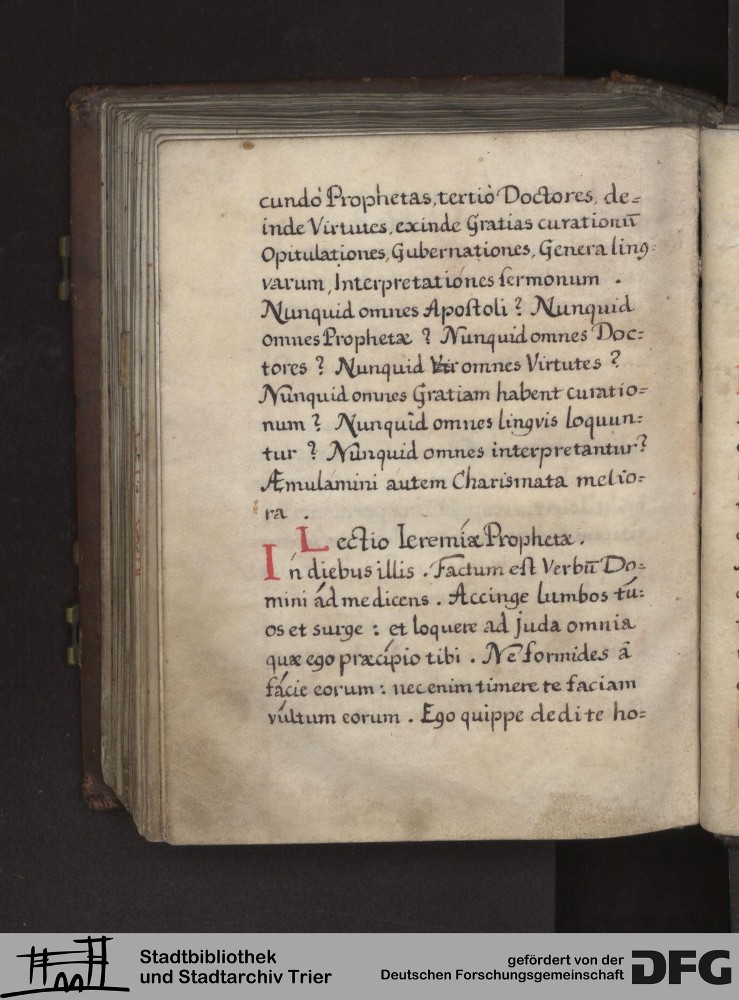 cundò Prophetas, tertiò Doctores, de=
inde Virtutes, exinde Gratias curationū
Opitulationes, Gubernationes, Genera ling=
varum, Interpretationes ſermonum .
Nunquid omnes Apoſtoli ? Nunquid
omnes Prophetæ ? Nunquid omnes Doc=
tores ? Nunquid omnes Virtutes ?
Nunquid omnes Gratiam habent curatio=
num ? Nunquid omnes lingvis loquun=
tur ? Nunquid omnes interpretantur ?
Æmulámini autem Charismata melio=
ra .
Lectio Ieremiæ Prophetæ .
In diebus illis . Factum eſt Verbū Do=
mini ád me dicens . Accinge lumbos tú=
os et surge : et loquere ad Juda omnia
quæ ego præcípio tibi . Ne formides â
fácie eorum : nec enim timere te faciam
vúltum eorum . Ego quippe dedi te ho=
Stadtbibliothek
und Stadtarchiv Trier
gefördert von der
Deutschen Forschungsgemeinschaft
DFG